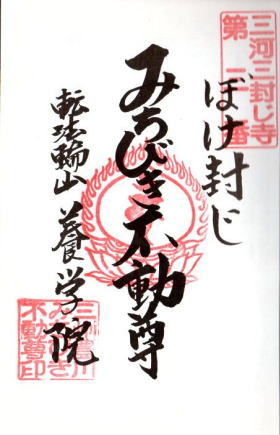 三河三封じ寺
第二番
ぼけ封じ
みちびき不動尊
転法輪山 養学院
不動尊印